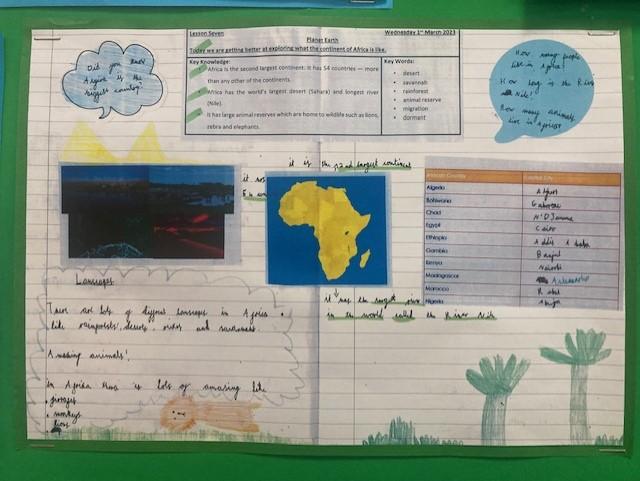 Lesson Seven
Wednesday 1st March 2023
Planet Earth
Today we are getting better at exploring what the continent of Africa is like.
Key Knowledge:
Africa is the second largest continent. It has 54 countries – more
than any other of the continents.
Africa has the world's largest desert (Sahara) and longest river
(Nile).
It has large animal reserves which are home to wildlife such as lions,
zebra and elephants.
Key Words:
desert
savannah
rainforest
animal reserve
migration
dormant
Did you know
Africa is the
biggest country?
How many people
live in Africa?
How long is the River
Nile?
How many animals
live in Africa?
it is the 2nd largest continent
African Country
Capital City
Algeria
Botswana
Gaborone
Chad
N'Djamena
Egypt
Cairo
Ethiopia
Addis Ababa
Gambia
Banjul
Kenya
Nairobi
Madagascar
Morocco
Rabat
Nigeria
Abuja
it has the longest river
in the world called the River Nile
There are lots of
in Africa
like
and
Amazing animals!
in Africa there is lots of amazing like
monkeys
lions